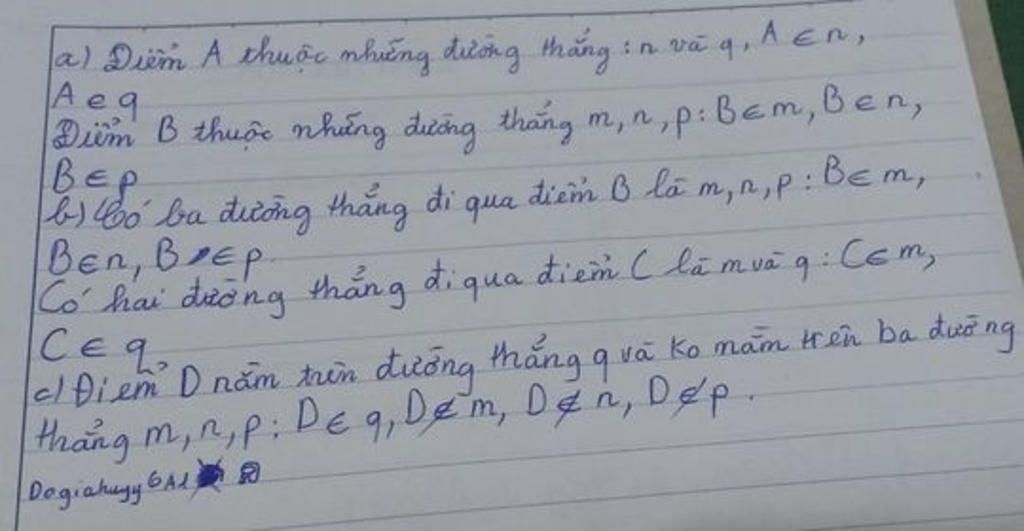 a) Điểm A thuộc những đường thẳng : n và q, A ∈ n,
A ∈ q
Điểm B thuộc những đường thẳng m, n, p : B ∈ m, B ∈ n,
B ∈ p
b) Có ba đường thẳng đi qua điểm B là m, n, p : B ∈ m,
B ∈ n, B ∈ p.
Có hai đường thẳng đi qua điểm C là m và q : C ∈ m,
C ∈ q
c) Điểm D nằm trên đường thẳng q và ko nằm trên ba đường
thẳng m, n, p : D ∈ q, D ∉ m, D ∉ n, D ∉ p.
Dogiahuyy 6A1